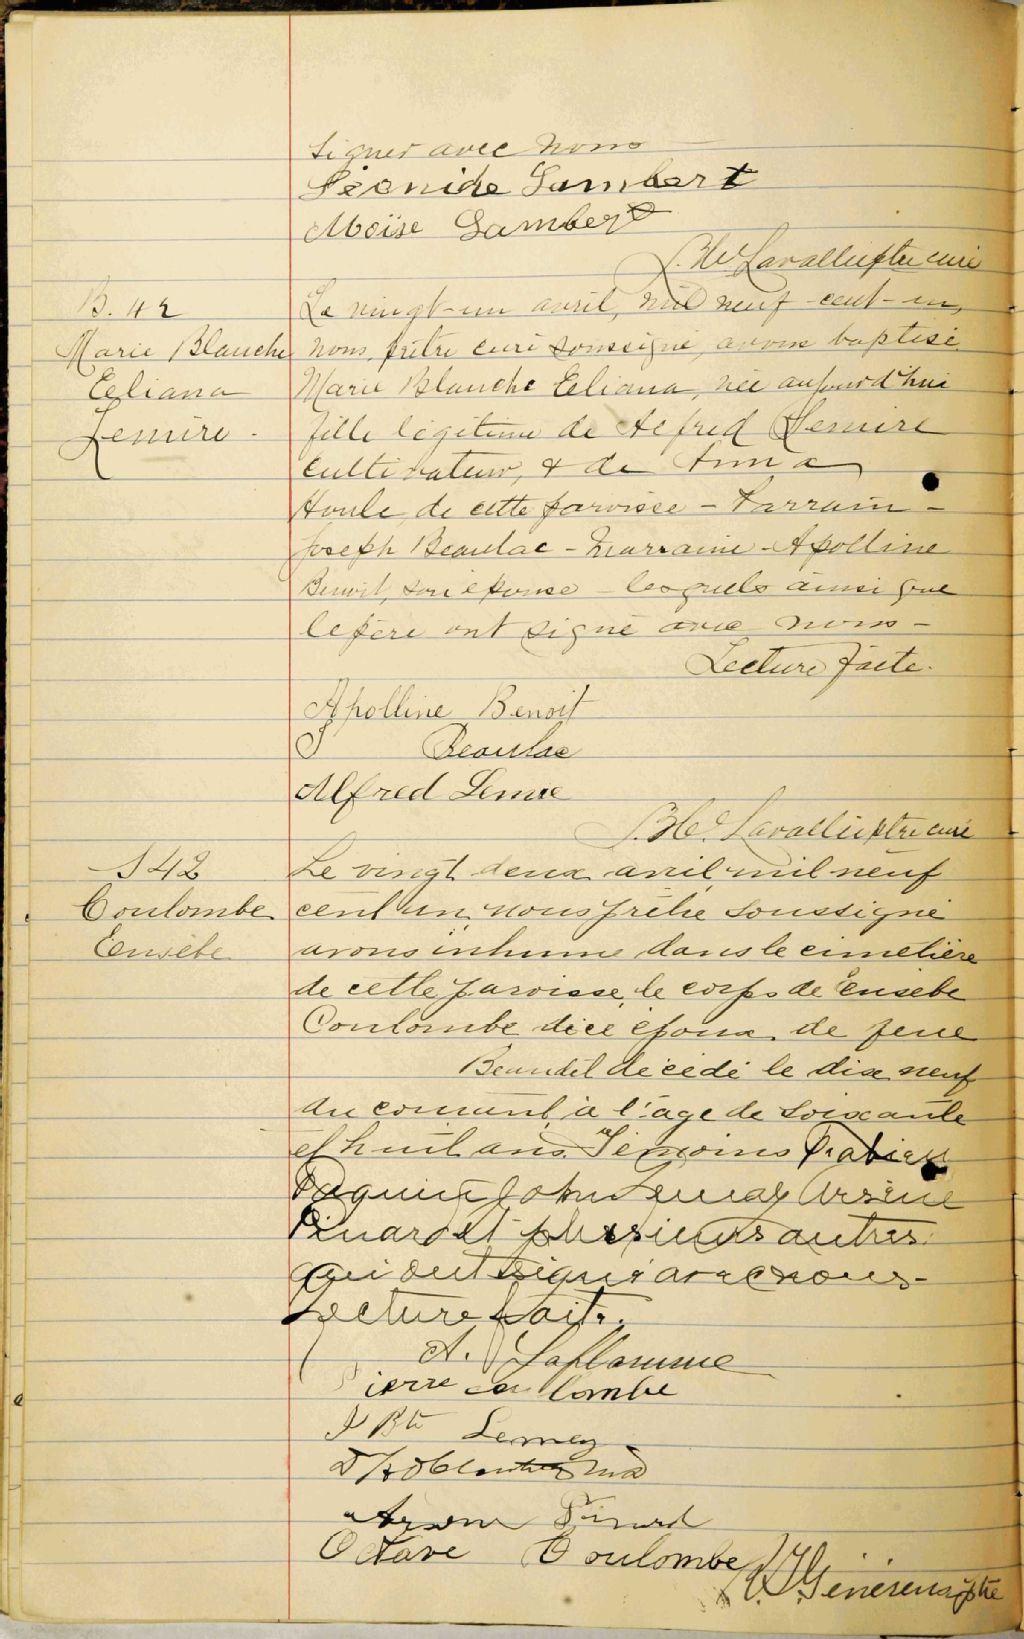 signer avec nous
Léonide Lambert
Moïse Lambert
Lavallée ptre curé
B. 42
Marie Blanche
Eeliana
Lemire.
Le vingt-un avril, mil neuf-cent-un,
nous, prêtre curé soussigné, avons baptisé
Marie Blanche Eeliana, née aujourd'hui
fille légitime de Alfred Lemire
cultivateur, & de Anna
Houle, de cette paroisse - Parrain -
Joseph Beaulac - Marraine - Apolline
Benoit, son épouse - lesquels ainsi que
le père ont signé avec nous -
Lecture faite.
Apolline Benoit
J Beaulac
Alfred Lemire
Lavallée ptre curé
S 42
Coulombe
Eusèbe
Le vingt deux avril mil neuf
cent un, nous prêtre soussigné
avons inhumé dans le cimetière
de cette paroisse, le corps de Eusèbe
Coulombe époux de feue
Beaudet décédé le dix neuf
du courant, à l'age de soixante
et huit ans. Témoins
Paquin John Lemay Arsène
Pinard et plusieurs autres
qui ont signé avec nous -
Lecture faite.
A. Laflamme
Pierre coulombe
J Bte Lemay
Arsene Pinard
Octave Coulombe
Généreux ptre